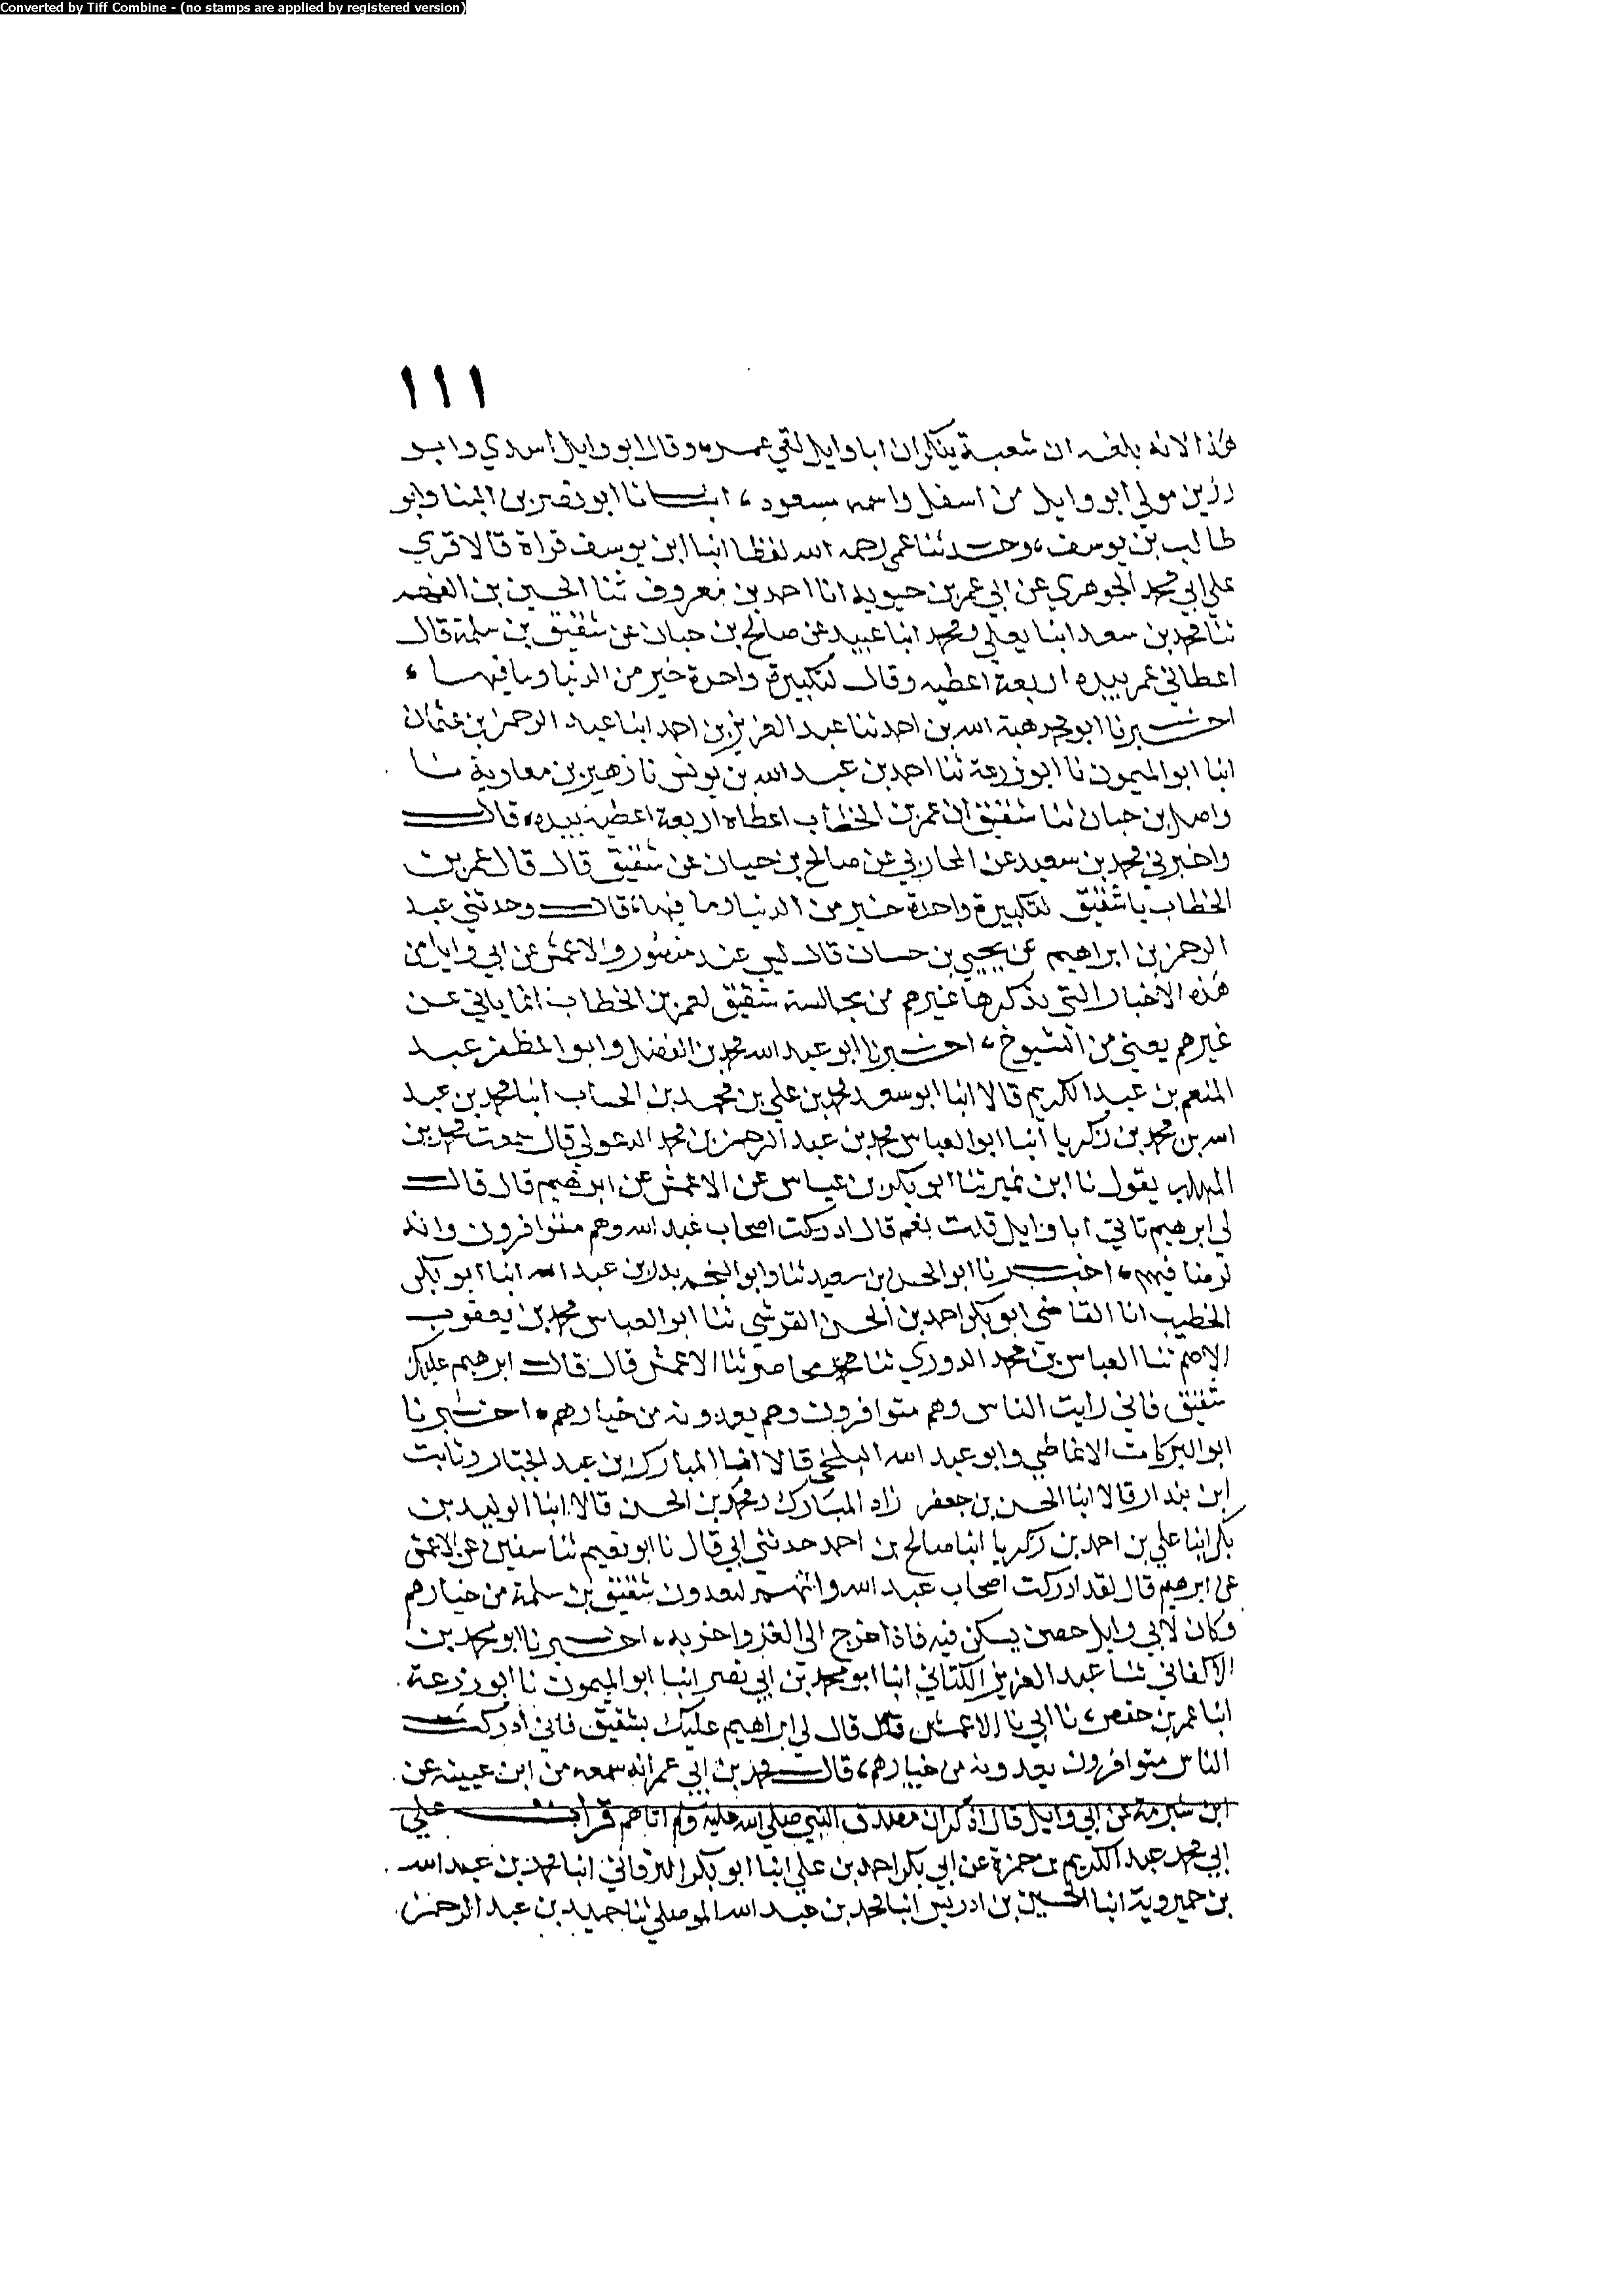 Converted by Tiff Combine - (no stamps are applied by registered version)
١١١
هذا لانه بلغه ان شعبة ينكر ان ابا وايل لقي عمر، وقال ابو وايل اسدي وابو
رزين مولي ابو وايل من اسفل واسمه مسعود، انبانا ابو نصر بن البنا وابو
طالب بن يوسف، وحدثنا عمي رحمه الله لفظا انبا ابن يوسف قراة قالا قري
علي ابي محمد الجوهري عن ابي عمر بن حيويه انا احمد بن معروف ثنا الحسين بن الفهم
ثنا محمد بن سعد انبا يعلي ومحمد انبا عبيد عن صالح بن حبان عن شقيق بن سلمة قال
اعطاني عمر بيده اربعة اعطيه وقال لتكبيرة واحدة خير من الدنيا وما فيها،
اخبرنا ابو محمد هبة الله بن احمد ثنا عبد العزيز بن احمد انبا عبد الرحمن بن عثمان
انبا ابو الميمون نا ابو زرعة ثنا احمد بن عبد الله بن يونس نا زهير بن معاوية نا
واصل بن حبان ثنا شقيق ان عمر بن الخطاب اعطاه اربعة اعطيه بيده، قال
واخبرني محمد بن سعيد عن المحاربي عن صالح بن حيان عن شقيق قال قال عمر بن
الخطاب يا شقيق لتكبيرة واحدة خير من الدنيا وما فيها، قال وحدثني عبد
الرحمن بن ابراهيم عن يحيي بن حسان قال ليس عند منصور والاعمش عن ابي وايل من
هذه الاخبار التي يذكرها غيرهم من مجالسة شقيق لعمر بن الخطاب انما ياتي عن
غيرهم يعني من الشيوخ، اخبرنا ابو عبد الله محمد بن الفضل وابو المظفر عبد
المنعم بن عبد الكريم قالا انبا ابو سعد محمد بن علي بن محمد بن الخشاب انبا محمد بن عبد
الله بن محمد بن زكريا انبا ابو العباس محمد بن عبد الرحمن بن محمد الدغولي قال سمعت محمد بن
المهلب يقول نا ابن نمير ثنا ابو بكر بن عياس عن الاعمش عن ابرهيم قال قال
لي ابرهيم تاتي ابا وايل قلت نعم قال ادركت اصحاب عبد الله وهم متوافرون وانه
فيهم، اخبرنا ابو الحسن بن سعيد ثنا وابو النجم بدر بن عبد الله انبا ابو بكر
الخطيب انا القاضي ابو بكر احمد بن الحسن القرشي ثنا ابو العباس محمد بن يعقوب
الاصم ثنا العباس بن محمد الدوري ثنا محاضر ثنا الاعمش قال قال ابرهيم عليك
شقيق فاني رايت الناس وهم متوافرون وهم يعدونه من خيارهم، اخبرنا
ابو البركات الانماطي وابو عبد الله البلخي قالا انبا المبارك بن عبد الجبار وثابت
ابن بندار قالا انبا الحسين بن جعفر زاد المبارك ومحمد بن الحسن قالا انبا الوليد بن
بكر انبا علي بن احمد بن زكريا انبا صالح بن احمد حدثني ابي قال نا ابو نعيم ثنا سفين عن الاعمش
عن ابرهيم قال لقد ادركت اصحاب عبد الله وانهم ليعدون شقيق بن سلمة من خيارهم
وكان لابي وايل خص يسكن فيه فاذا خرج الي الغزو اخربه، اخبرنا ابو محمد بن
الاكفاني ثنا عبد العزيز الكتاني انبا ابو محمد بن ابي نصر انبا ابو الميمون نا ابو زرعة
انبا عمر بن حفص، نا ابي نا الاعمش قال قال لي ابراهيم عليك بشقيق فاني ادركت
الناس متوافرون يعدونه من خيارهم، قال محمد بن ابي عمر انه سمعه من ابن عيينة عن
ابن شبرمة عن ابي وايل قال اذكر ان مصدق النبي صلي الله عليه ولم اتاهم قرات علي
ابي محمد عبد الكريم بن حمزة عن ابي بكر احمد بن علي انبا ابو بكر البرقاني انبا محمد بن عبد الله
بن خميروية انبا الحسين بن ادريس انبا محمد بن عبد الله الموصلي ثنا حميد بن عبد الرحمن